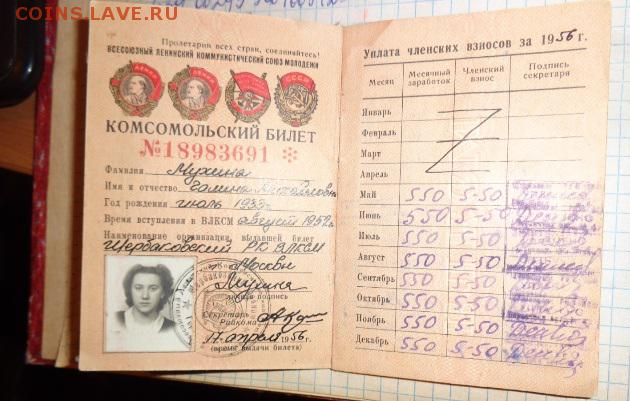 COINS.LAVE.RU
Пролетарии всех стран, соединяйтесь!
ВСЕСОЮЗНЫЙ ЛЕНИНСКИЙ КОММУНИСТИЧЕСКИЙ СОЮЗ МОЛОДЕЖИ
ЛЕНИН
ЛЕНИН
СССР
КОМСОМОЛЬСКИЙ БИЛЕТ
№18983691
Фамилия Мухина
Имя и отчество Галина Михайловна
Год рождения июль 1939г
Время вступления в ВЛКСМ август 1952г.
Наименование организации, выдавшей билет
Щербаковский РК ВЛКСМ
г. Москвы
Мухина
личная подпись
Секретарь
Райкома
17 апреля 1956г.
(время выдачи билета)
Уплата членских взносов за 1956г.
Месяц Месячный заработок Членский взнос Подпись секретаря
Январь
Февраль
Март
Апрель
Май 550 5-50
Июнь 550 5-50
Июль 550 5-50
Август 550 5-50
Сентябрь 550 5-50
Октябрь 550 5-50
Ноябрь 550 5-50
Декабрь 550 5-50